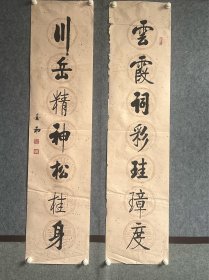 雲霞詞彩珪璋度
川岳精神松桂身